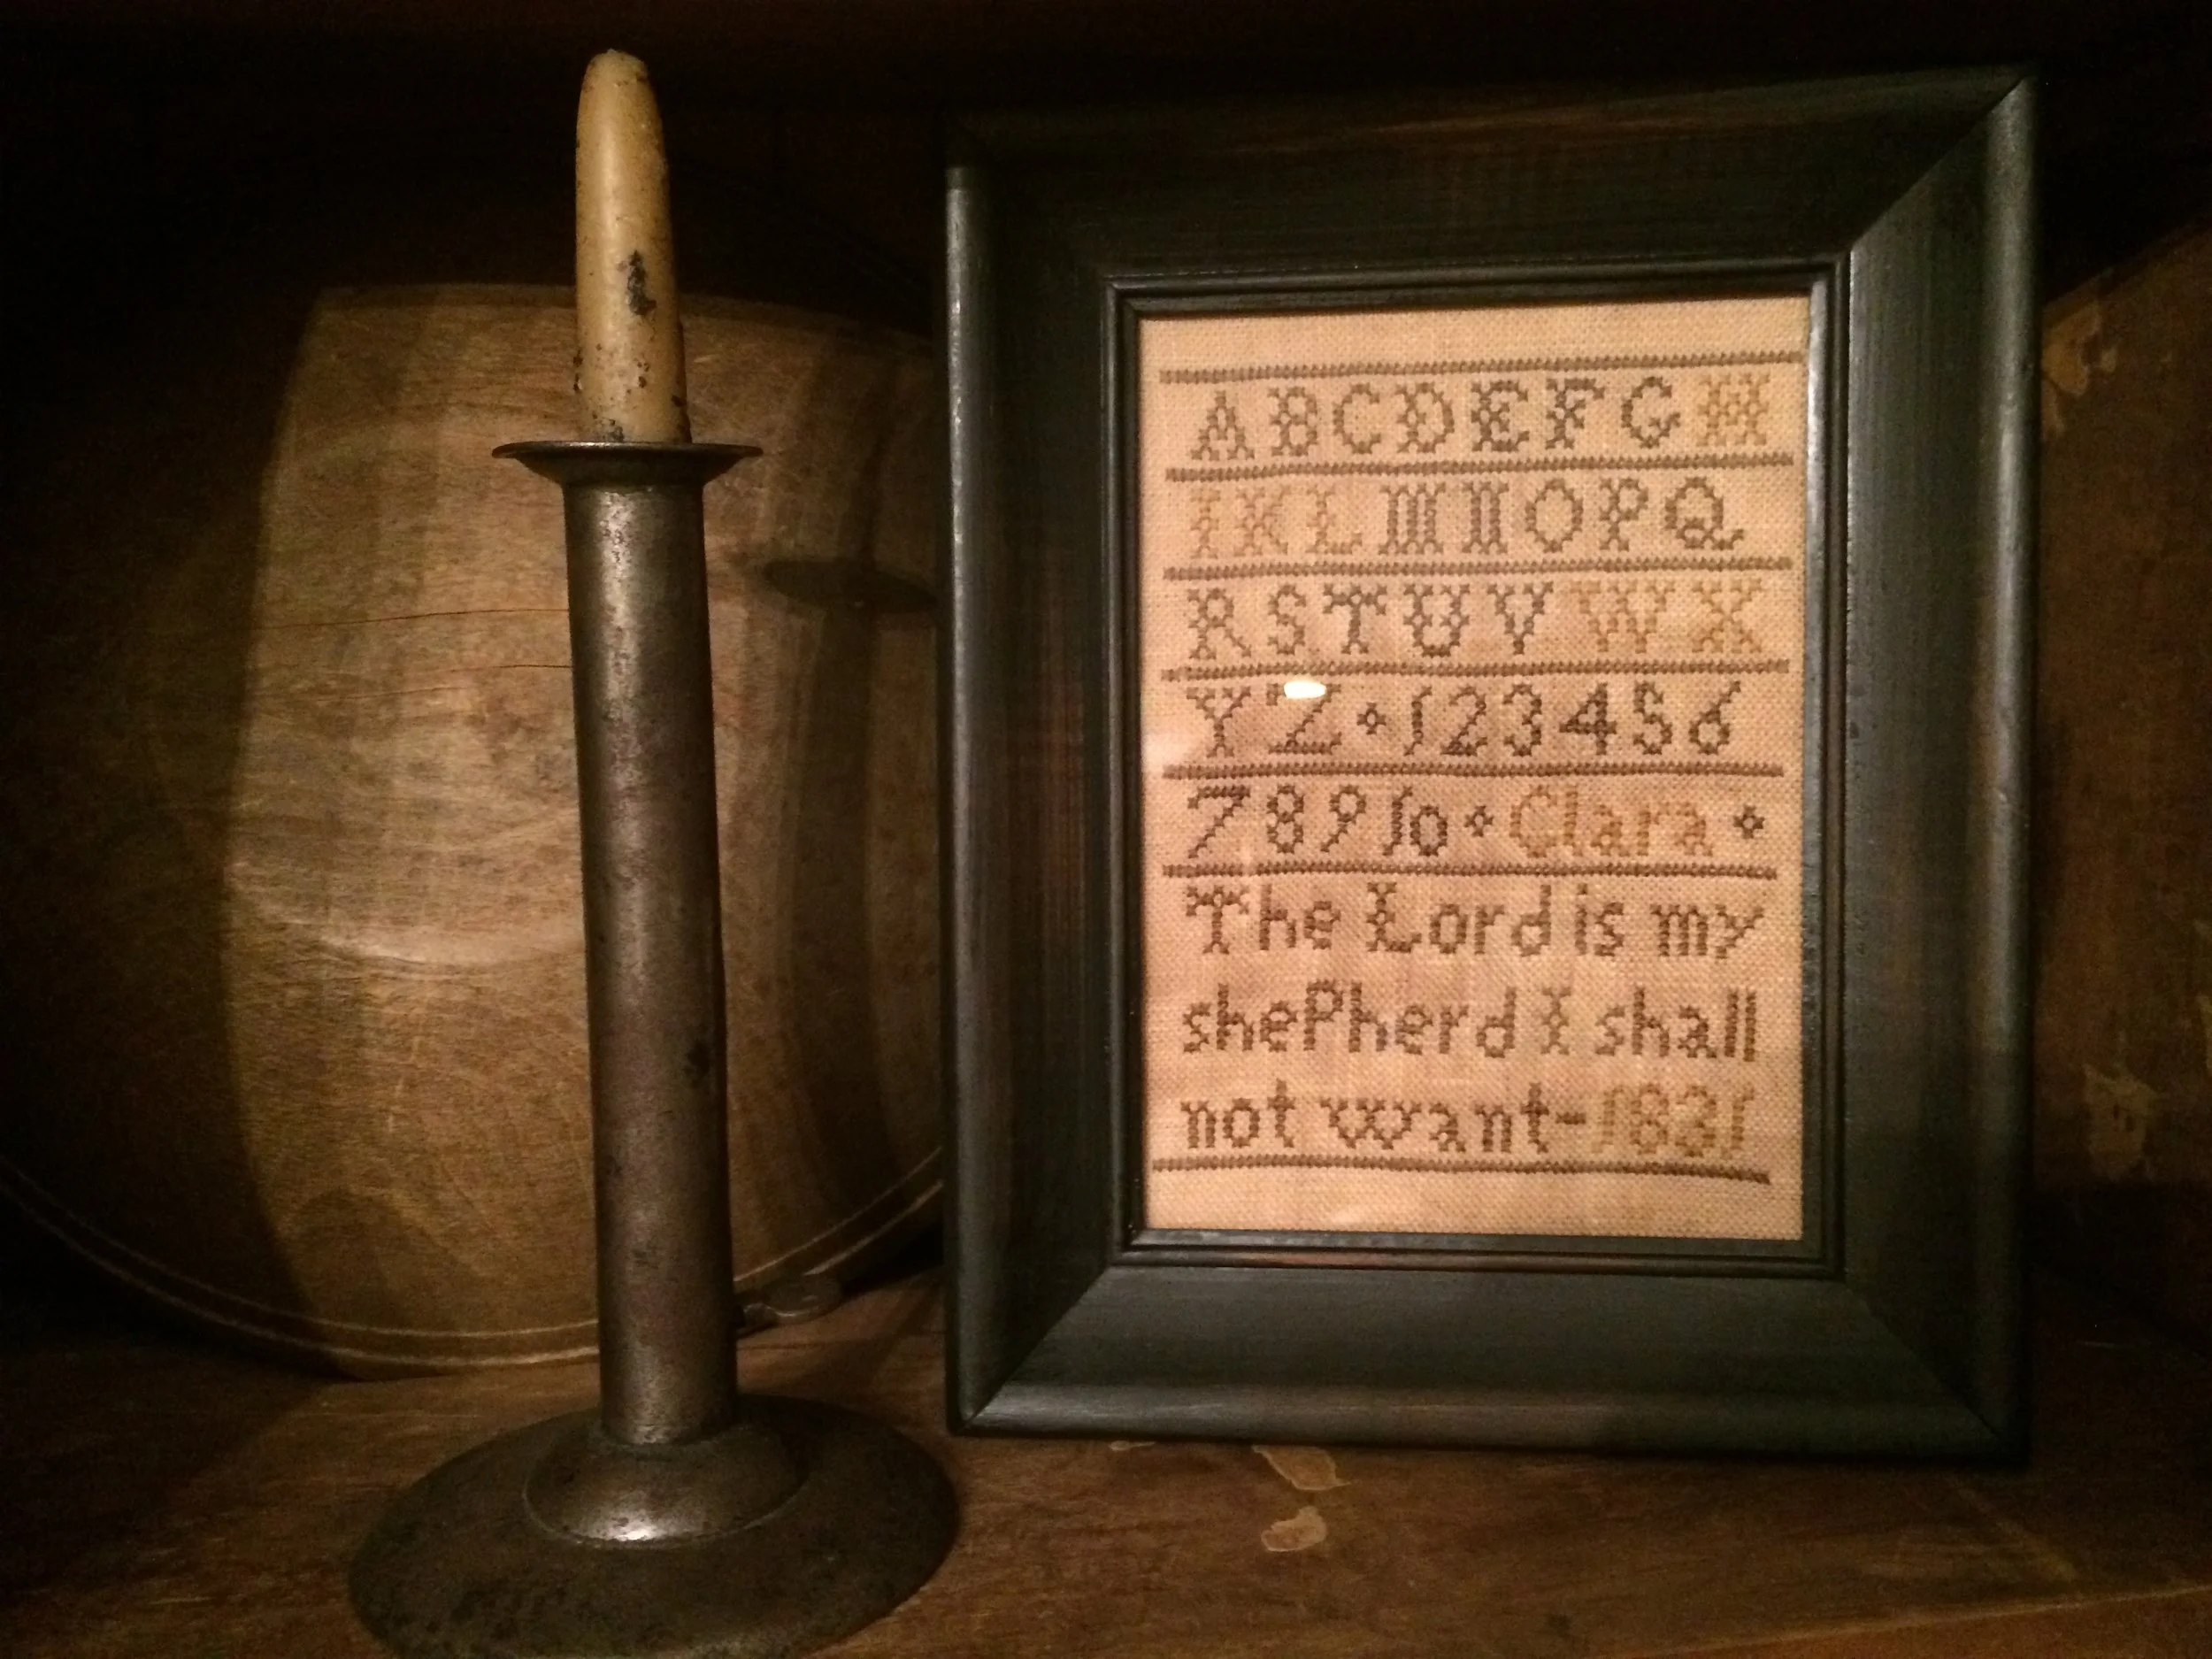 ABCDEFGH
IKLMNOPQ
RSTUVWX
YZ⋄123456
78910⋄Clara⋄
The Lord is my
shePherd I shall
not want-1831